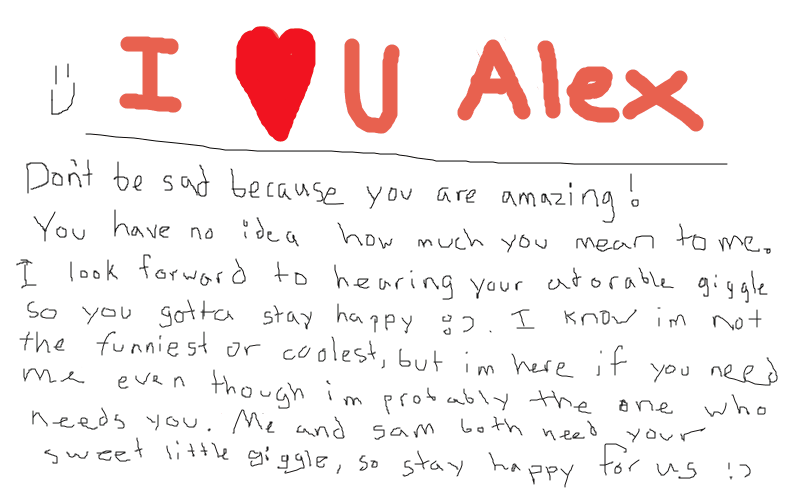 I ❤ U Alex
Don't be sad because you are amazing!
You have no idea how much you mean to me.
I look forward to hearing your adorable giggle
so you gotta stay happy :). I know im not
the funniest or coolest, but im here if you need
me even though im probably the one who
needs you. Me and sam both need your
sweet little giggle, so stay happy for us :)